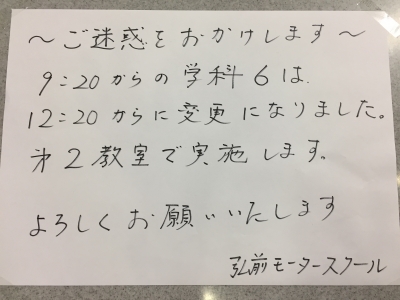 ～ご迷惑をおかけします～
9:20からの学科6は
12:20からに変更になりました。
第2教室で実施します。
よろしくお願いいたします
弘前モータースクール